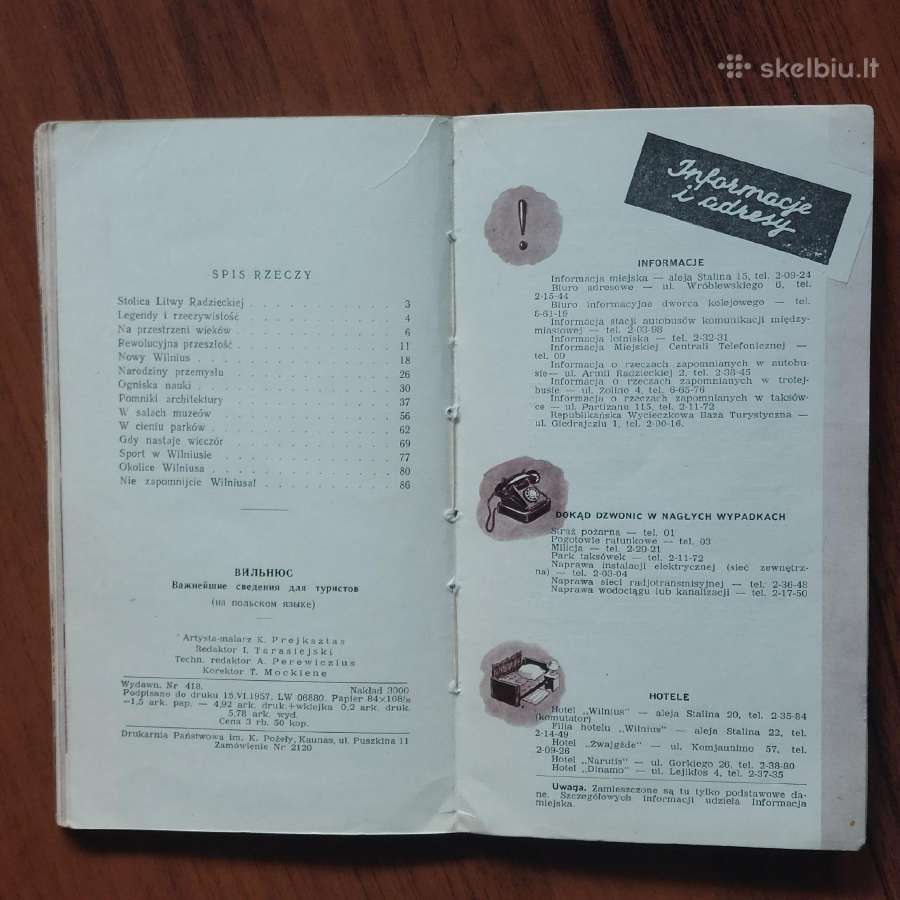 skelbiu.lt
SPIS RZECZY
Stolica Litwy Radzieckiej . . . . . . . . . . 3
Legendy i rzeczywistość . . . . . . . . . . 4
Na przestrzeni wieków . . . . . . . . . . 6
Rewolucyjna przeszłość . . . . . . . . . . 11
Nowy Wilnius . . . . . . . . . . 18
Narodziny przemysłu . . . . . . . . . . 26
Ogniska nauki . . . . . . . . . . 30
Pomniki architektury . . . . . . . . . . 37
W salach muzeów . . . . . . . . . . 56
W cieniu parków . . . . . . . . . . 62
Gdy nastaje wieczór . . . . . . . . . . 69
Sport w Wilniusie . . . . . . . . . . 77
Okolice Wilniusa . . . . . . . . . . 80
Nie zapomnijcie Wilniusa! . . . . . . . . . . 86
ВИЛЬНЮС
Важнейшие сведения для туристов
(на польском языке)
Artysta-malarz K. Prejksztas
Redaktor I. Tarasiejski
Techn. redaktor A. Perewiczius
Korektor T. Mockienę
Wydawn. Nr 418. Nakład 3000
Podpisano do druku 15.VI.1957, LW 06880. Papier 84×108/₈
=1,5 ark. pap. — 4,92 ark. druk.+wklejka 0,2 ark. druk.
5,78 ark. wyd.
Cena 3 rb. 50 kop.
Drukarnia Państwowa im. K. Pożeły, Kaunas, ul. Puszkina 11
Zamówienie Nr 2120
Informacje
i adresy
INFORMACJE
Informacja miejska — aleja Stalina 15, tel. 2-09-24
Biuro adresowe — ul. Wróblewskiego 6, tel.
2-15-44
Biuro informacyjne dworca kolejowego — tel.
6-61-19
Informacja stacji autobusów komunikacji między-
miastowej — tel. 2-03-98
Informacja lotniska — tel. 2-32-31
Informacja Miejskiej Centrali Telefonicznej —
tel. 09
Informacja o rzeczach zapomnianych w autobu-
sie— ul. Armii Radzieckiej 2, tel. 2-38-45
Informacja o rzeczach zapomnianych w trolej-
busie — ul. Żolino 4, tel. 6-65-76
Informacja o rzeczach zapomnianych w taksów-
ce — ul. Partizanu 115, tel. 2-11-72
Republikańska Wycieczkowa Baza Turystyczna —
ul. Giedrajcziu 1, tel. 2-00-16.
DOKĄD DZWONIĆ W NAGŁYCH WYPADKACH
Straż pożarna — tel. 01
Pogotowie ratunkowe — tel. 03
Milicja — tel. 2-20-21
Park taksówek — tel. 2-11-72
Naprawa instalacji elektrycznej (sieć zewnętrz-
na) — tel. 2-03-04
Naprawa sieci radjotransmisyjnej — tel. 2-36-48
Naprawa wodociągu lub kanalizacji — tel. 2-17-50
HOTELE
Hotel „Wilnius" — aleja Stalina 20, tel. 2-35-84
(komutator)
Filia hotelu „Wilnius" — aleja Stalina 22, tel.
2-14-49
Hotel „Zwajgżde" — ul. Komjaunimo 57, tel.
2-09-26
Hotel „Narutis" — ul. Gorkiego 26, tel. 2-38-80
Hotel „Dinamo" — ul. Lejiklos 4, tel. 2-37-35
Uwaga. Zamieszczone są tu tylko podstawowe da-
ne. Szczegółowych informcji udziela informacja
miejska.